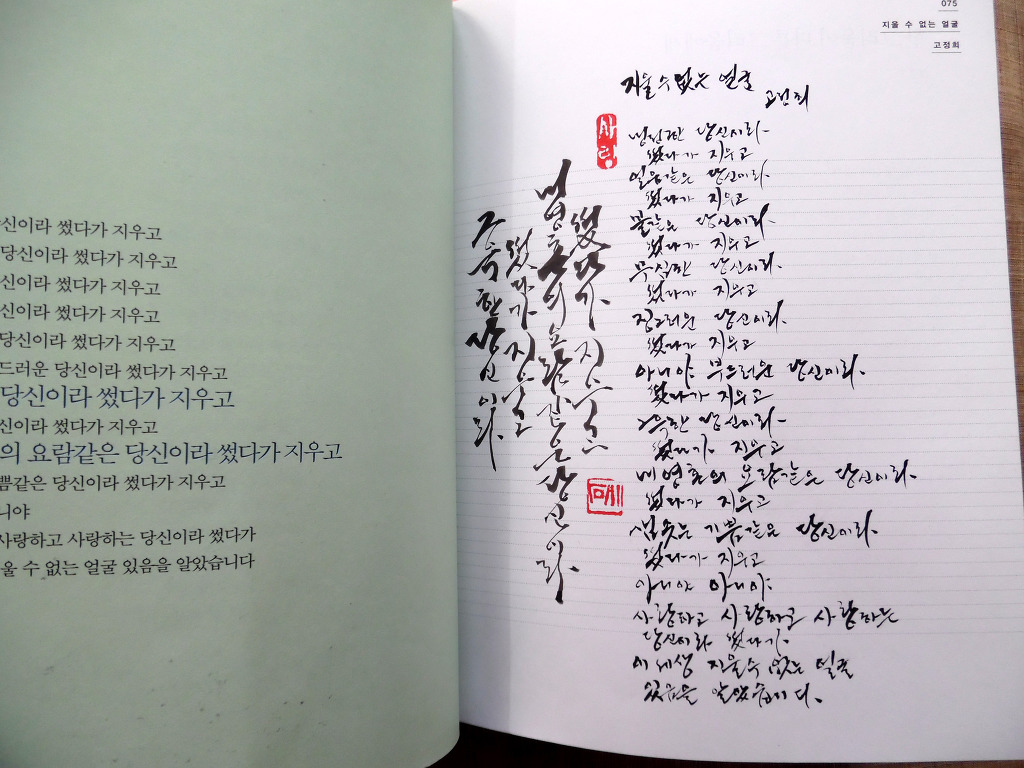 신이라 썼다가 지우고
당신이라 썼다가 지우고
신이라 썼다가 지우고
신이라 썼다가 지우고
당신이라 썼다가 지우고
드러운 당신이라 썼다가 지우고
당신이라 썼다가 지우고
신이라 썼다가 지우고
의 요람같은 당신이라 썼다가 지우고
쁨같은 당신이라 썼다가 지우고
니야
사랑하고 사랑하는 당신이라 썼다가
울 수 없는 얼굴 있음을 알았습니다
075
지울 수 없는 얼굴
고정희
지울 수 없는 얼굴
고정희
사랑
냉정한 당신이라
썼다가 지우고
얼음같은 당신이라
썼다가 지우고
불같은 당신이라
썼다가 지우고
무심한 당신이라
썼다가 지우고
징그러운 당신이라
썼다가 지우고
아니야 부드러운 당신이라
썼다가 지우고
그윽한 당신이라
썼다가 지우고
내 영혼의 요람같은 당신이라
썼다가 지우고
샘솟는 기쁨같은 당신이라
썼다가 지우고
아니야 아니야
사랑하고 사랑하고 사랑하는
당신이라 썼다가
이 세상 지울 수 없는 얼굴
있음을 알았습니다.
그윽한 당신이라
썼다가 지우고
내 영혼의 요람같은 당신이라
썼다가 지우고